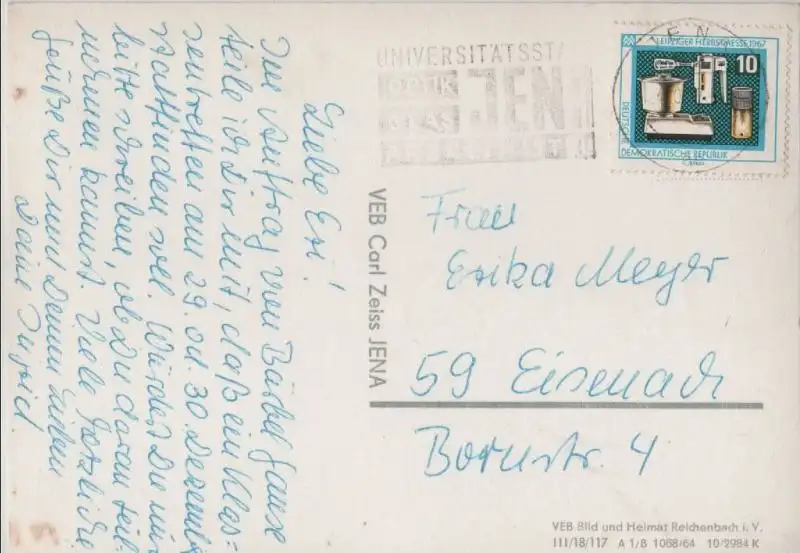 Liebe Eri!
Im Auftrag von Bärbel Jause
teile ich Dir mit, daß ein Klas=
sentreffen am 29. od. 30. Dezember
stattfinden soll. Würdest Du mir
bitte schreiben, ob Du daran teil-
nehmen kannst. Viele herzliche
Grüße Dir und Deinen Lieben
Deine
UNIVERSITÄTSST
OPTIK
GLAS
JEN
JEN
LEIPZIGER HERBSTMESSE 1967
10
DEUTSCHE
DEMOKRATISCHE REPUBLIK
VEB Carl Zeiss JENA
Frau
Erika Meyer
59 Eisenach
Bornstr. 4
VEB Bild und Heimat Reichenbach i. V.
III/18/117 A 1/B 1068/64 10/2984 K